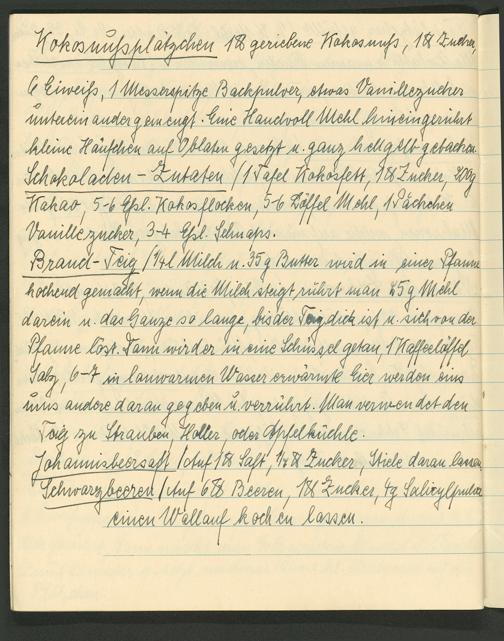 Kokosnußplätzchen 1 ℔ geriebene Kokosnuß, 1 ℔ Zucker,
6 Eiweiß, 1 Messerspitze Backpulver, etwas Vanillezucker
untereinander gemengt. Eine Handvoll Mehl hineingerührt
kleine Häufchen auf Oblaten gesetzt u. ganz hellgelb gebacken.
Schokoladen-Zutaten / 1 Tafel Kokosfett, 1 ℔ Zucker, 200g
Kakao, 5-6 Eßl. Kokosflocken, 5-6 Löffel Mehl, 1 Päckchen
Vanillezucker, 3-4 Eßl. Schnaps.
Brand-Teig / ¼ l Milch u. 35 g Butter wird in einer Pfanne
kochend gemacht, wenn die Milch steigt, rührt man g Mehl
darein u. das Ganze so lange, bis der Teig dick ist u. sich von der
Pfanne löst. Dann wird er in eine Schüssel getan, 1 Kaffeelöffel
Salz, 6-7 in lauwarmen Wasser erwärmte Eier werden eins
ums andere daran gegeben u. verrührt. Man verwendet den
Teig zu Strauben, Holler, oder Apfelküchle.
Johannisbeersaft / Auf 1 ℔ Saft, ℔ Zucker, Stiele daran lassen
Schwarzbeeren / Auf 6 ℔ Beeren, 1 ℔ Zucker, 4g Salizylpulver
einen Wallauf kochen lassen.